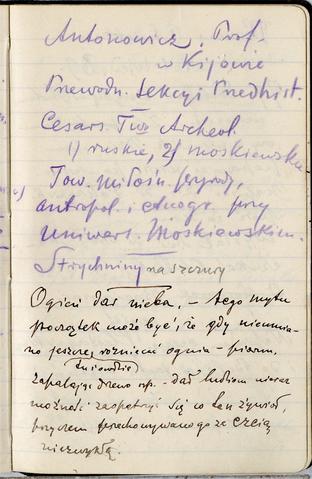 Antonowicz, Prof.
w Kijowie
Przewodn. Sekcyi Przedhist.
Cesars. Tow. Archeol.
1) ruskie, 2) moskiewskie
Tow. miłośn. przyrody,
antropol. i etnogr. przy
Uniwers. Moskiewskim.
Strychniny na szczury
Ogień dar nieba. – tego mytu
początek może być, że gdy nieumia-
no jeszcze rozniecić ognia – piorun,
(uniowdzie)
zapalając drzewo np. – dał ludziom nieraz
możność zaopatrzyć się w ten żywioł,
przechowywanego ze czcią
niezwykłą.